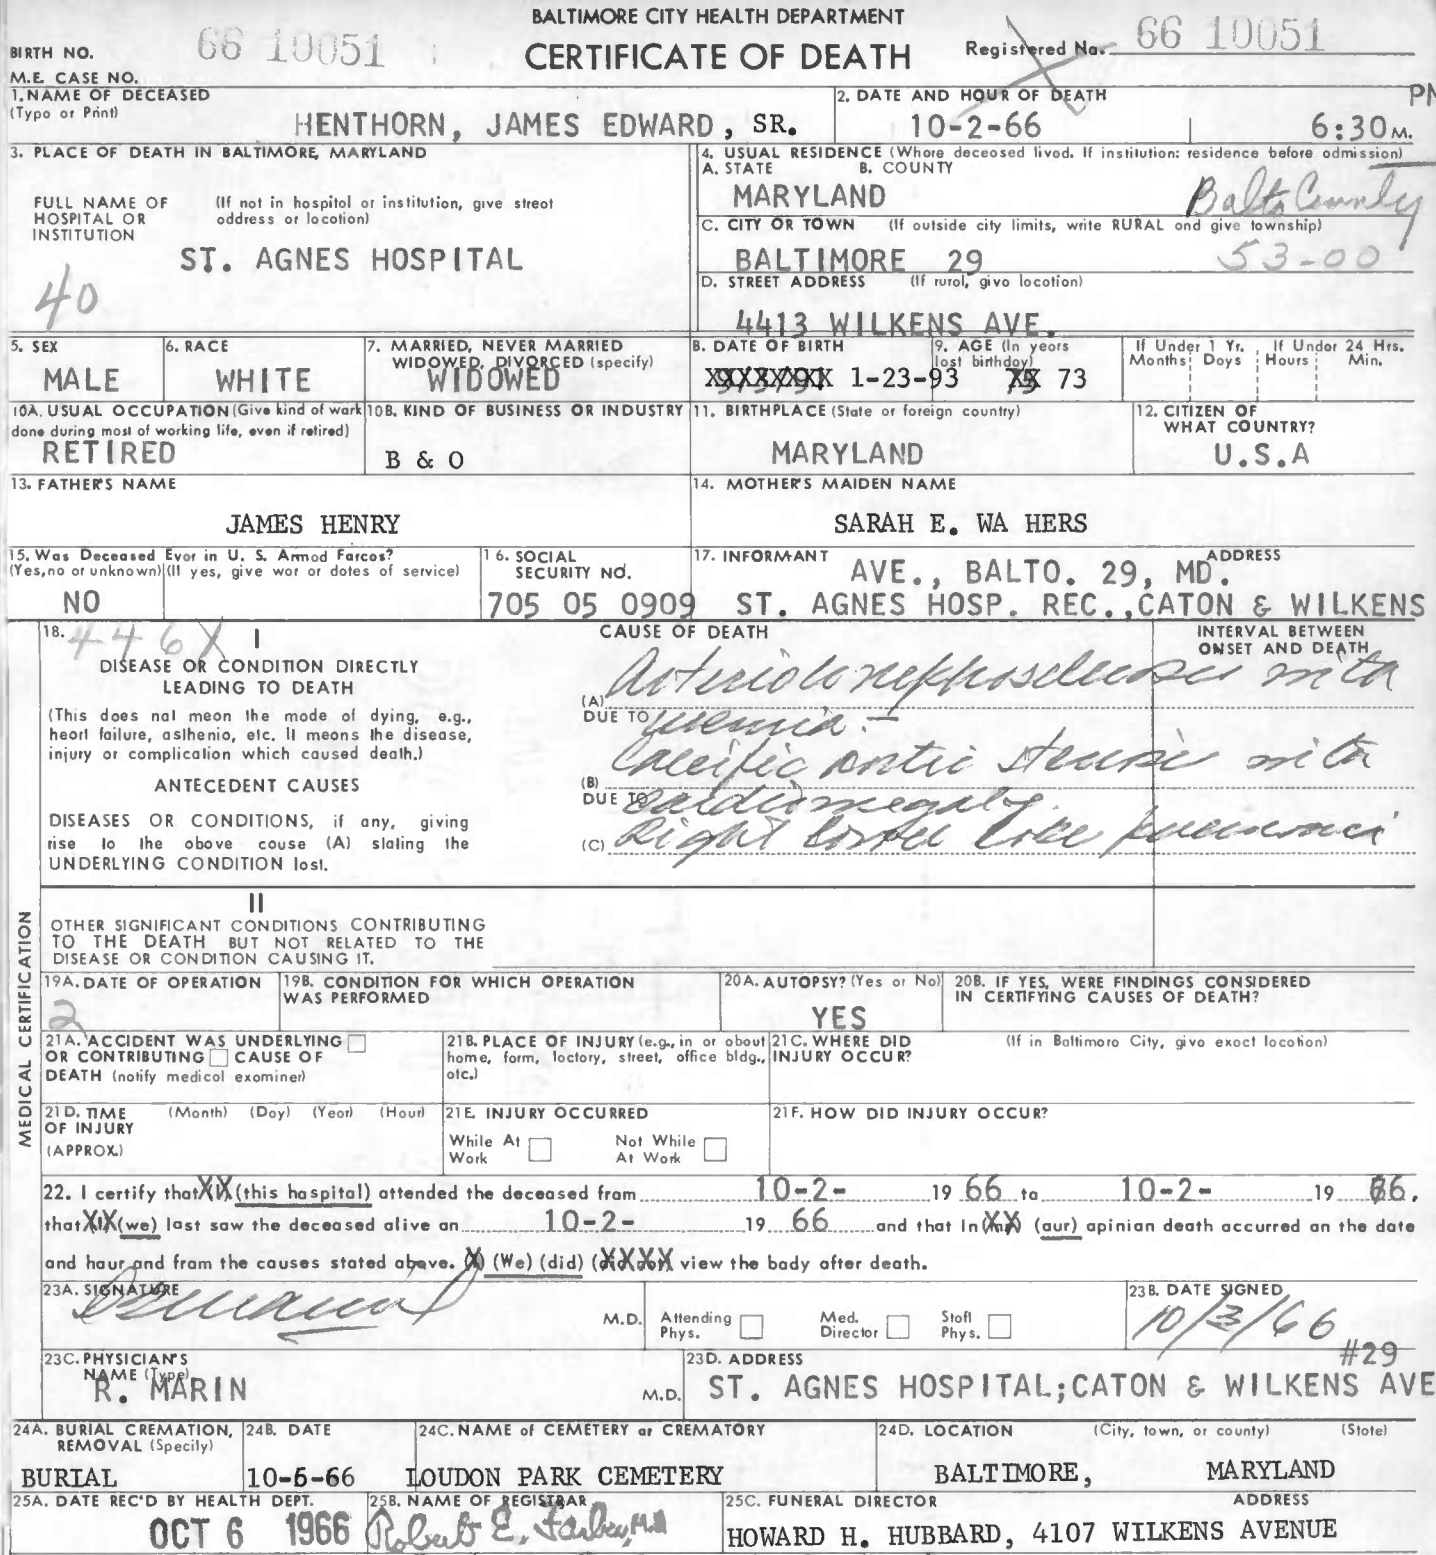 BALTIMORE CITY HEALTH DEPARTMENT
CERTIFICATE OF DEATH
BIRTH NO. 66 10051
Registered No. 66 10051
M.E. CASE NO.
1. NAME OF DECEASED
(Type or Print)
HENTHORN, JAMES EDWARD, SR.
2. DATE AND HOUR OF DEATH
10-2-66 6:30 M.
PM
3. PLACE OF DEATH IN BALTIMORE, MARYLAND
FULL NAME OF HOSPITAL OR INSTITUTION
(If not in hospital or institution, give street address or location)
ST. AGNES HOSPITAL
40
4. USUAL RESIDENCE (Where deceased lived. If institution: residence before admission)
A. STATE B. COUNTY
MARYLAND Balto County
C. CITY OR TOWN (If outside city limits, write RURAL and give township)
BALTIMORE 29 53-00
D. STREET ADDRESS (If rural, give location)
4413 WILKENS AVE.
5. SEX
MALE
6. RACE
WHITE
7. MARRIED, NEVER MARRIED
WIDOWED, DIVORCED (specify)
WIDOWED
8. DATE OF BIRTH
1-23-93
9. AGE (In years last birthday)
73
If Under 1 Yr. If Under 24 Hrs.
Months Days Hours Min.
10A. USUAL OCCUPATION (Give kind of work done during most of working life, even if retired)
RETIRED
10B. KIND OF BUSINESS OR INDUSTRY
B & O
11. BIRTHPLACE (State or foreign country)
MARYLAND
12. CITIZEN OF WHAT COUNTRY?
U.S.A
13. FATHER'S NAME
JAMES HENRY
14. MOTHER'S MAIDEN NAME
SARAH E. WA HERS
15. Was Deceased Ever in U. S. Armed Forces?
(Yes, no or unknown) (If yes, give war or dates of service)
NO
16. SOCIAL SECURITY NO.
705 05 0909
17. INFORMANT ADDRESS
AVE., BALTO. 29, MD.
ST. AGNES HOSP. REC., CATON & WILKENS
18. 446X I
CAUSE OF DEATH
INTERVAL BETWEEN ONSET AND DEATH
DISEASE OR CONDITION DIRECTLY LEADING TO DEATH
(This does not mean the mode of dying, e.g., heart failure, asthenia, etc. It means the disease, injury or complication which caused death.)
(A) Arteriolonephrosclerosis with
DUE TO uremia. -
(B) Calcific aortic stenosis with
DUE TO cardiomegaly.
(C) Right lower lobe pneumonia
ANTECEDENT CAUSES
DISEASES OR CONDITIONS, if any, giving rise to the above cause (A) stating the UNDERLYING CONDITION last.
II
OTHER SIGNIFICANT CONDITIONS CONTRIBUTING TO THE DEATH BUT NOT RELATED TO THE DISEASE OR CONDITION CAUSING IT.
MEDICAL CERTIFICATION
19A. DATE OF OPERATION
2
19B. CONDITION FOR WHICH OPERATION WAS PERFORMED
20A. AUTOPSY? (Yes or No)
YES
20B. IF YES, WERE FINDINGS CONSIDERED IN CERTIFYING CAUSES OF DEATH?
21A. ACCIDENT WAS UNDERLYING OR CONTRIBUTING CAUSE OF DEATH (notify medical examiner)
21B. PLACE OF INJURY (e.g., in or about home, farm, factory, street, office bldg., etc.)
21C. WHERE DID INJURY OCCUR? (If in Baltimore City, give exact location)
21D. TIME OF INJURY (APPROX.) (Month) (Day) (Year) (Hour)
21E. INJURY OCCURRED
While At Work Not While At Work
21F. HOW DID INJURY OCCUR?
22. I certify that (this hospital) attended the deceased from 10-2- 19 66 to 10-2- 19 66.
that (we) last saw the deceased alive on 10-2- 19 66 and that in (our) opinion death occurred on the date
and hour and from the causes stated above. (We) (did) view the body after death.
23A. SIGNATURE
M.D. Attending Phys. Med. Director Staff Phys.
23B. DATE SIGNED
10/3/66
23C. PHYSICIAN'S NAME (Type)
R. MARIN M.D.
23D. ADDRESS #29
ST. AGNES HOSPITAL;CATON & WILKENS AVE
24A. BURIAL CREMATION, REMOVAL (Specify)
BURIAL
24B. DATE
10-6-66
24C. NAME of CEMETERY or CREMATORY
LOUDON PARK CEMETERY
24D. LOCATION (City, town, or county) (State)
BALTIMORE, MARYLAND
25A. DATE REC'D BY HEALTH DEPT.
OCT 6 1966
25B. NAME OF REGISTRAR
Robert E. Farber, M.D.
25C. FUNERAL DIRECTOR ADDRESS
HOWARD H. HUBBARD, 4107 WILKENS AVENUE